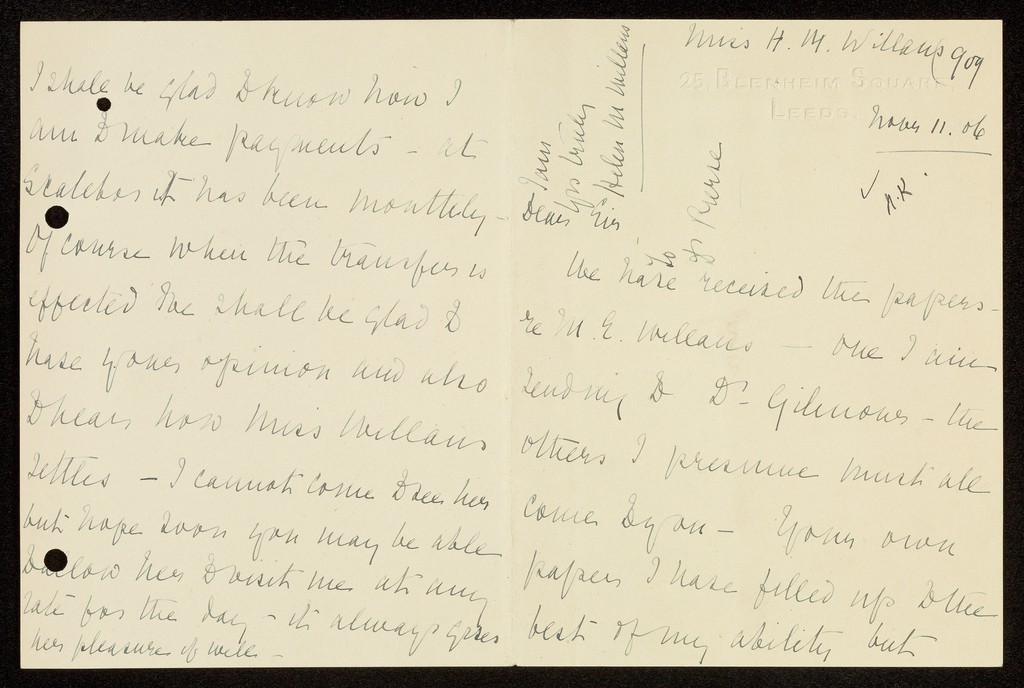 Miss H. M. Willans 909
25, Blenheim Square,
Leeds.
Novr 11. 06
✓ A.K.
Dear Sir,
We have received the papers -
re M. E. Willans — One I am
sending to Dr Gilmour - the
others I presume must all
come to you - Your own
papers I have filled up to the
best of my ability but
I shall be glad to know how I
am to make payments - at
Scalebor it has been monthly -
Of course when the transfer is
effected we shall be glad to
have your opinion and also
to hear how Miss Willans
settles - I cannot come to see her
but hope soon you may be able
to allow her to visit me at any
rate for the day - it always gives
her pleasure if well -
I am
Yrs truly
Helen M Willans
to
Dr Pierse